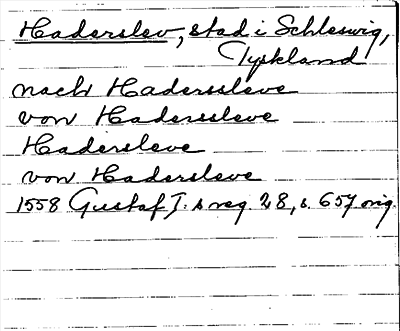 Haderslev, stad i Schleswig,
Tyskland
nach Haderssleve
von Haderssleve
Hadersleve
von Hadersleve
1558 Gustaf I:s reg. 28, s. 657 orig.